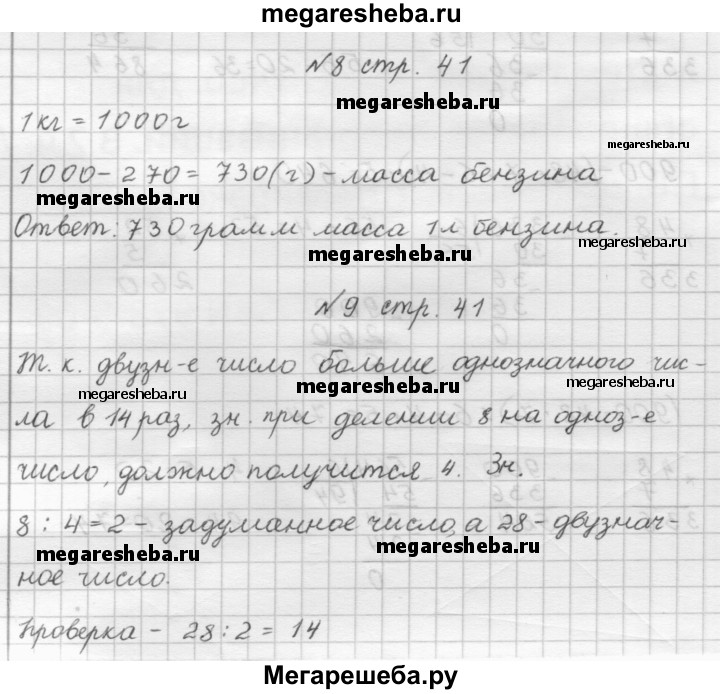 megaresheba.ru
№8 стр. 41
megaresheba.ru
1 кг = 1000 г
megaresheba.ru
1000 - 270 = 730 (г) - масса бензина
megaresheba.ru
Ответ: 730 грамм масса 1 л бензина.
megaresheba.ru
megaresheba.ru
№9 стр. 41
Т. к. двузн-е число больше однозначного чис-
megaresheba.ru
megaresheba.ru
megaresheba.ru
ла в 14 раз, зн. при делении 8 на одноз-е
число, должно получится 4. Зн.
8 : 4 = 2 - задуманное число, а 28 - двузнач-
megaresheba.ru
megaresheba.ru
ное число.
Проверка - 28 : 2 = 14
Мегарешеба.ру